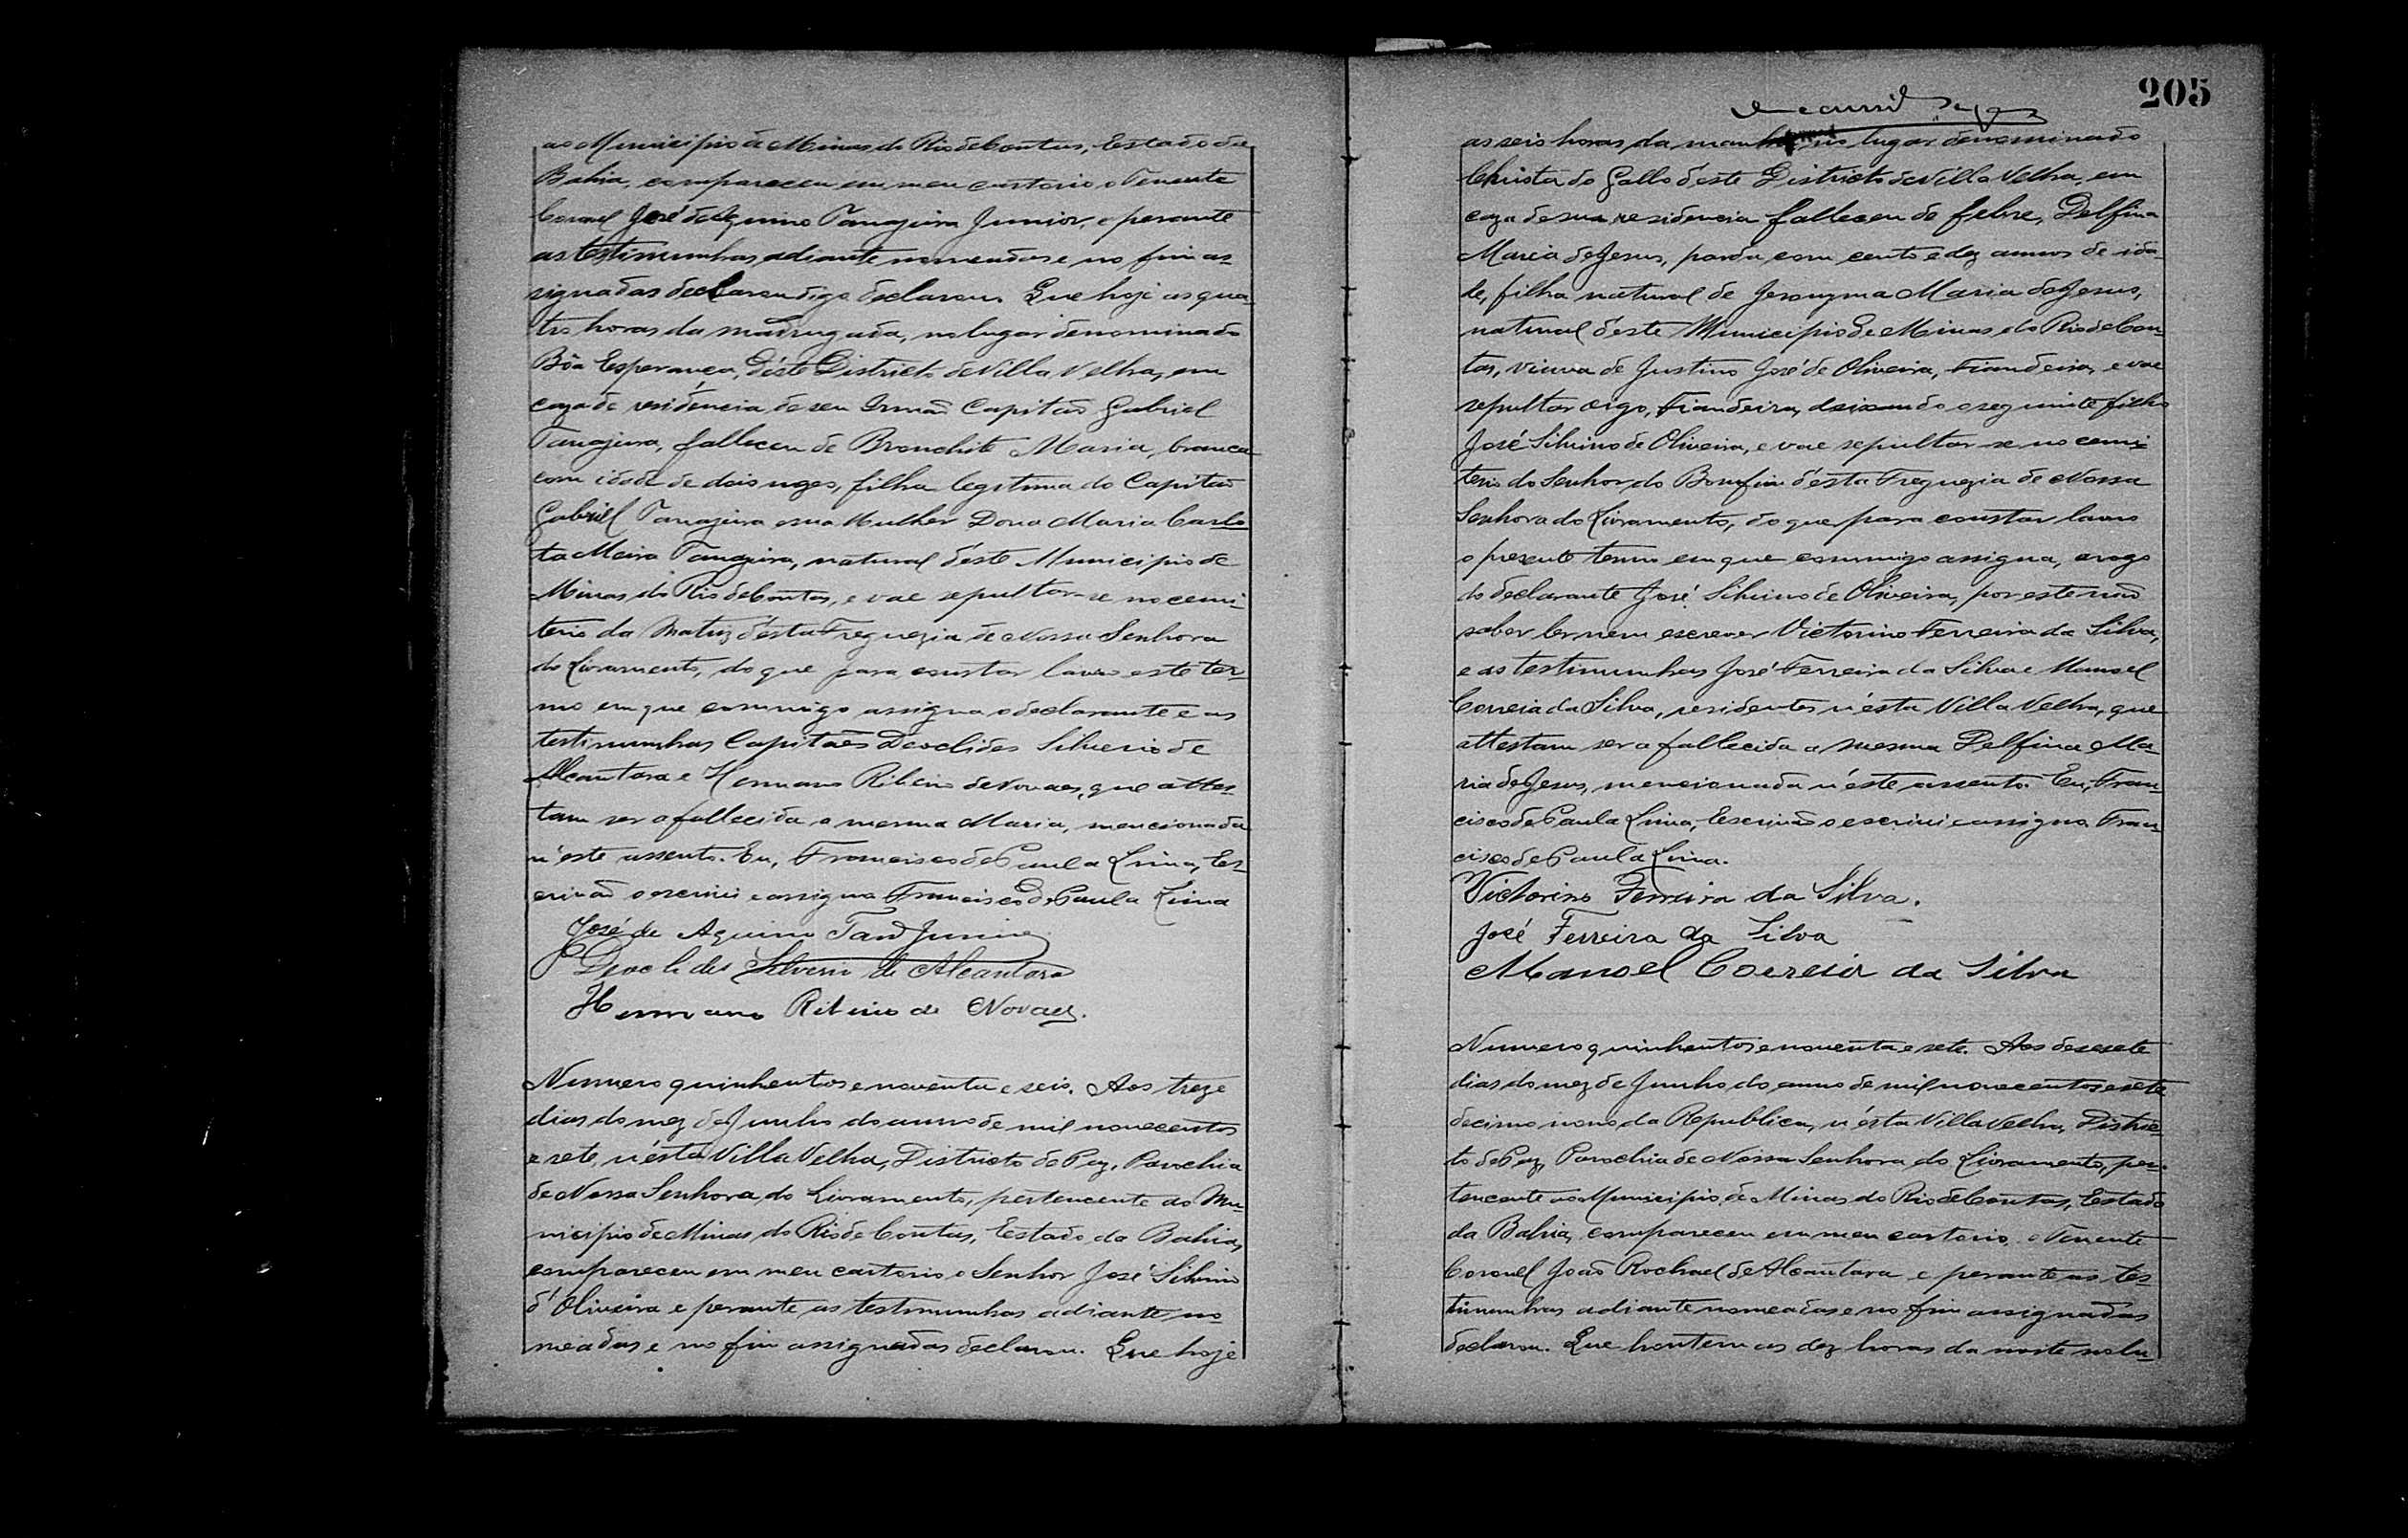 ao Municipio de Minas do Rio de Contas, Estado da
Bahia, compareceu em meu cartorio o Tenente
Coronel José de Aquino Tanajura Junior, e perante
as testimunhas adiante nomeadas e no fim as-
signadas declarou digo declarou. Que hoje as qua-
tro horas da madrugada, no lugar denominado
Bôa Esperança, d'éste Districto de Villa Velha, em
caza de residencia de seu Irmão Capitão Gabriel
Tanajura, falleceu de Bronchite Maria, branca
com idade de dois mezes, filha legitima do Capitão
Gabriel Tanajura e sua Mulher Dona Maria Carlo-
ta Meira Tanajura, natural d'éste Municipio de
Minas do Rio de Contas, e vae sepultar-se no cemi-
terio da Matriz d'ésta Freguezia de Nossa Senhora
do Livramento, do que para constar lavro este ter-
mo em que commigo assigna o declarante e as
testimunhas Capitães Deoclides Silverio de
Alcantara e Hermano Ribeiro de Novaes, que attes-
tam ser a fallecida a mesma Maria, mencionada
n'éste assento. Eu, Francisco de Paula Lima, Es-
crivão o escrivi e assigno Francisco de Paula Lima
José de Aquino Tan.ª Junior
Deoclides Silverio de Alcantara
Hermano Ribeiro de Novaes.
Numero quinhentos e noventa e seis. Aos treze
dias do mez de Junho do anno de mil novecentos
e sete, n'ésta Villa Velha, Districto de Paz, Parochia
de Nossa Senhora do Livramento, pertencente ao Mu-
nicipio de Minas do Rio de Contas, Estado da Bahia,
compareceu em meu cartorio o Senhor José Silvino
d'Oliveira e perante as testimunhas adiante no-
meadas e no fim assignadas declarou. Que hoje
205
as seis horas da manhã no lugar denominado
Christa do Gallo d'éste Districto de Villa Velha, em
caza de sua residencia falleceu de febre, Delfina
Maria de Jesus, parda, com cento e dez annos de ida-
de, filha natural de Jeronyma Maria de Jesus,
natural d'éste Municipio de Minas do Rio de Con-
tas, viuva de Justino José de Oliveira, Fiandeira, e vae
sepultar digo, Fiandeira, deixando o seguinte filho
José Silvino de Oliveira, e vae sepultar-se no cemi-
terio do Senhor do Bomfim d'ésta Freguezia de Nossa
Senhora do Livramento, do que para constar lavro
o presente termo em que commigo assigna, a rogo
do declarante José Silvino de Oliveira, por este não
saber ler nem escrever Victorino Ferreira da Silva,
e as testimunhas José Ferreira da Silva e Manoel
Correia da Silva, residentes n'ésta Villa Velha, que
attestam ser a fallecida a mesma Delfina Ma-
ria de Jesus, mencionada n'éste assento. Eu, Fran-
cisco de Paula Lima, Escrivão o escrivi e assigno Fran-
cisco de Paula Lima.
Victorino Ferreira da Silva.
José Ferreira da Silva
Manoel Correia da Silva
Numero quinhentos e noventa e sete. Aos desesete
dias do mez de Junho do anno de mil novecentos e sete
decimo nono da Republica, n'ésta Villa Velha, Distric-
to de Paz, Parochia de Nossa Senhora do Livramento, per-
tencente ao Municipio de Minas do Rio de Contas, Estado
da Bahia, compareceu em meu cartorio, o Tenente
Coronel João Rochael de Alcantara e perante as tes-
timunhas adiante nomeadas e no fim assignadas
declarou. Que hontem as dez horas da noite no lu-